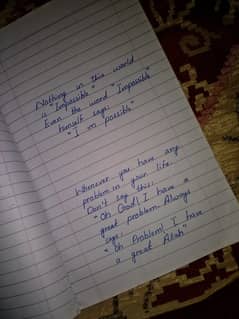 Nothing in this world
is "Impossible"
Even the word "Impossible"
himself says:
"I m possible"
Whenever you have any
problem in your life.
Don't say this:
"Oh God! I have a
great problem. Always
says:
"Oh Problem! I have
a great Allah"